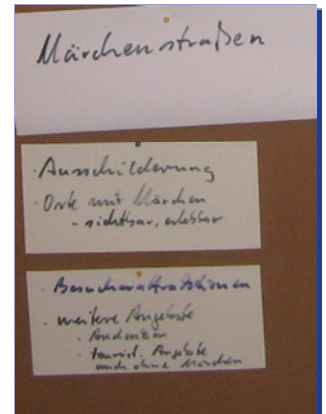 Märchenstraßen
· Ausschilderung
· Orte mit Märchen
- sichtbar, erlebbar
· Besucherattraktionen
· weitere Angebote
· Andenken
· tourist. Angebote
auch ohne Märchen